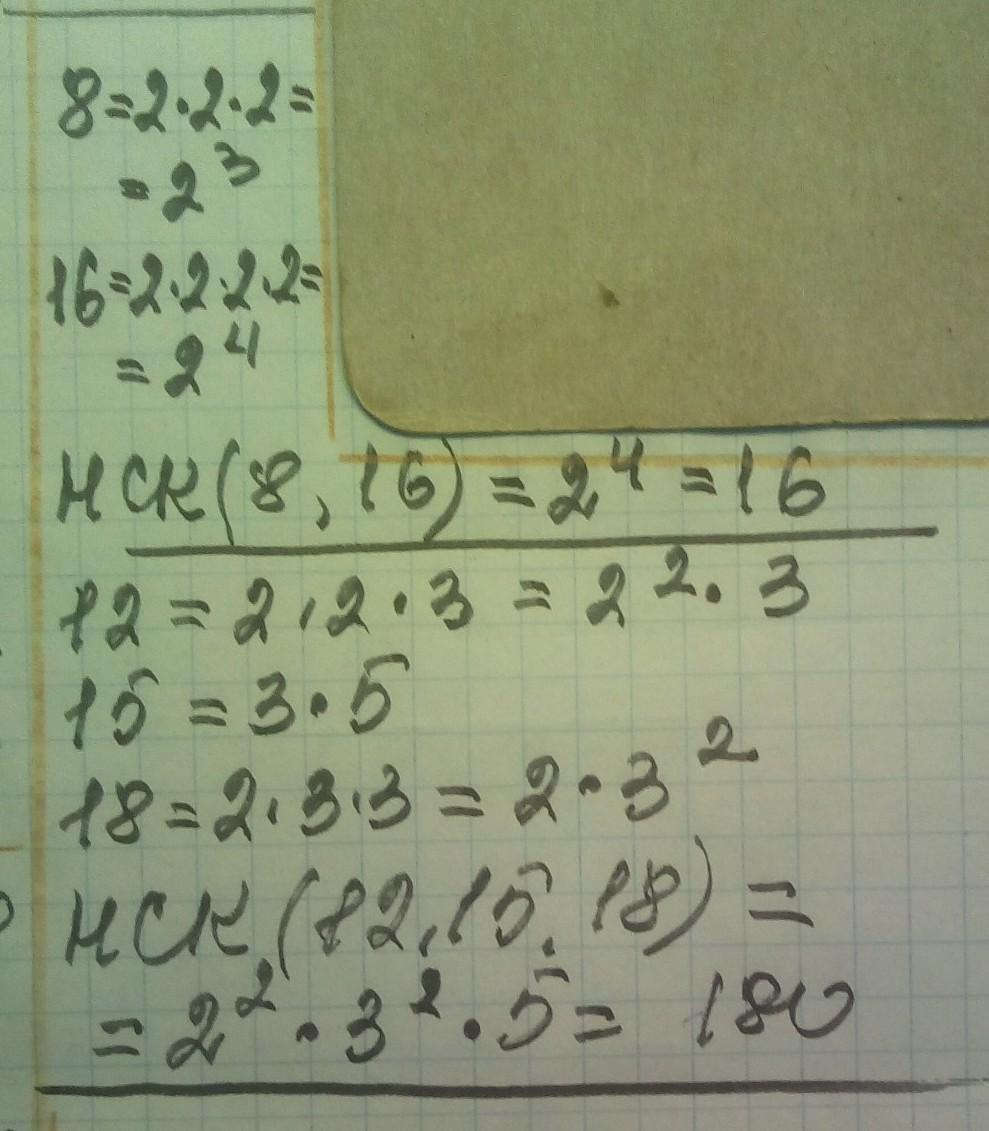 8=2·2·2=
=2³
16=2·2·2·2=
=2⁴
НСК(8, 16)=2⁴=16
12=2·2·3=2²·3
15=3·5
18=2·3·3=2·3²
НСК(12,15,18)=
=2²·3²·5=180